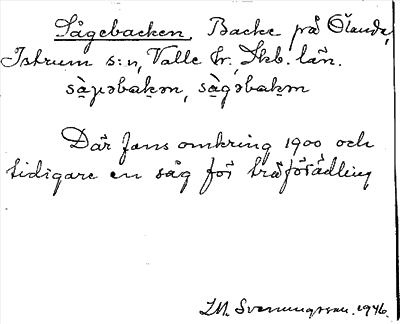 Sågebacken, Backe på Ölanda,
Istrum s:n, Valle hr, Skb. län.
sà̱γəbak̠əm, sà̱gəbak̠m
Där fans omkring 1900 och
tidigare en såg för träförädling
Svenungsson. 1946.